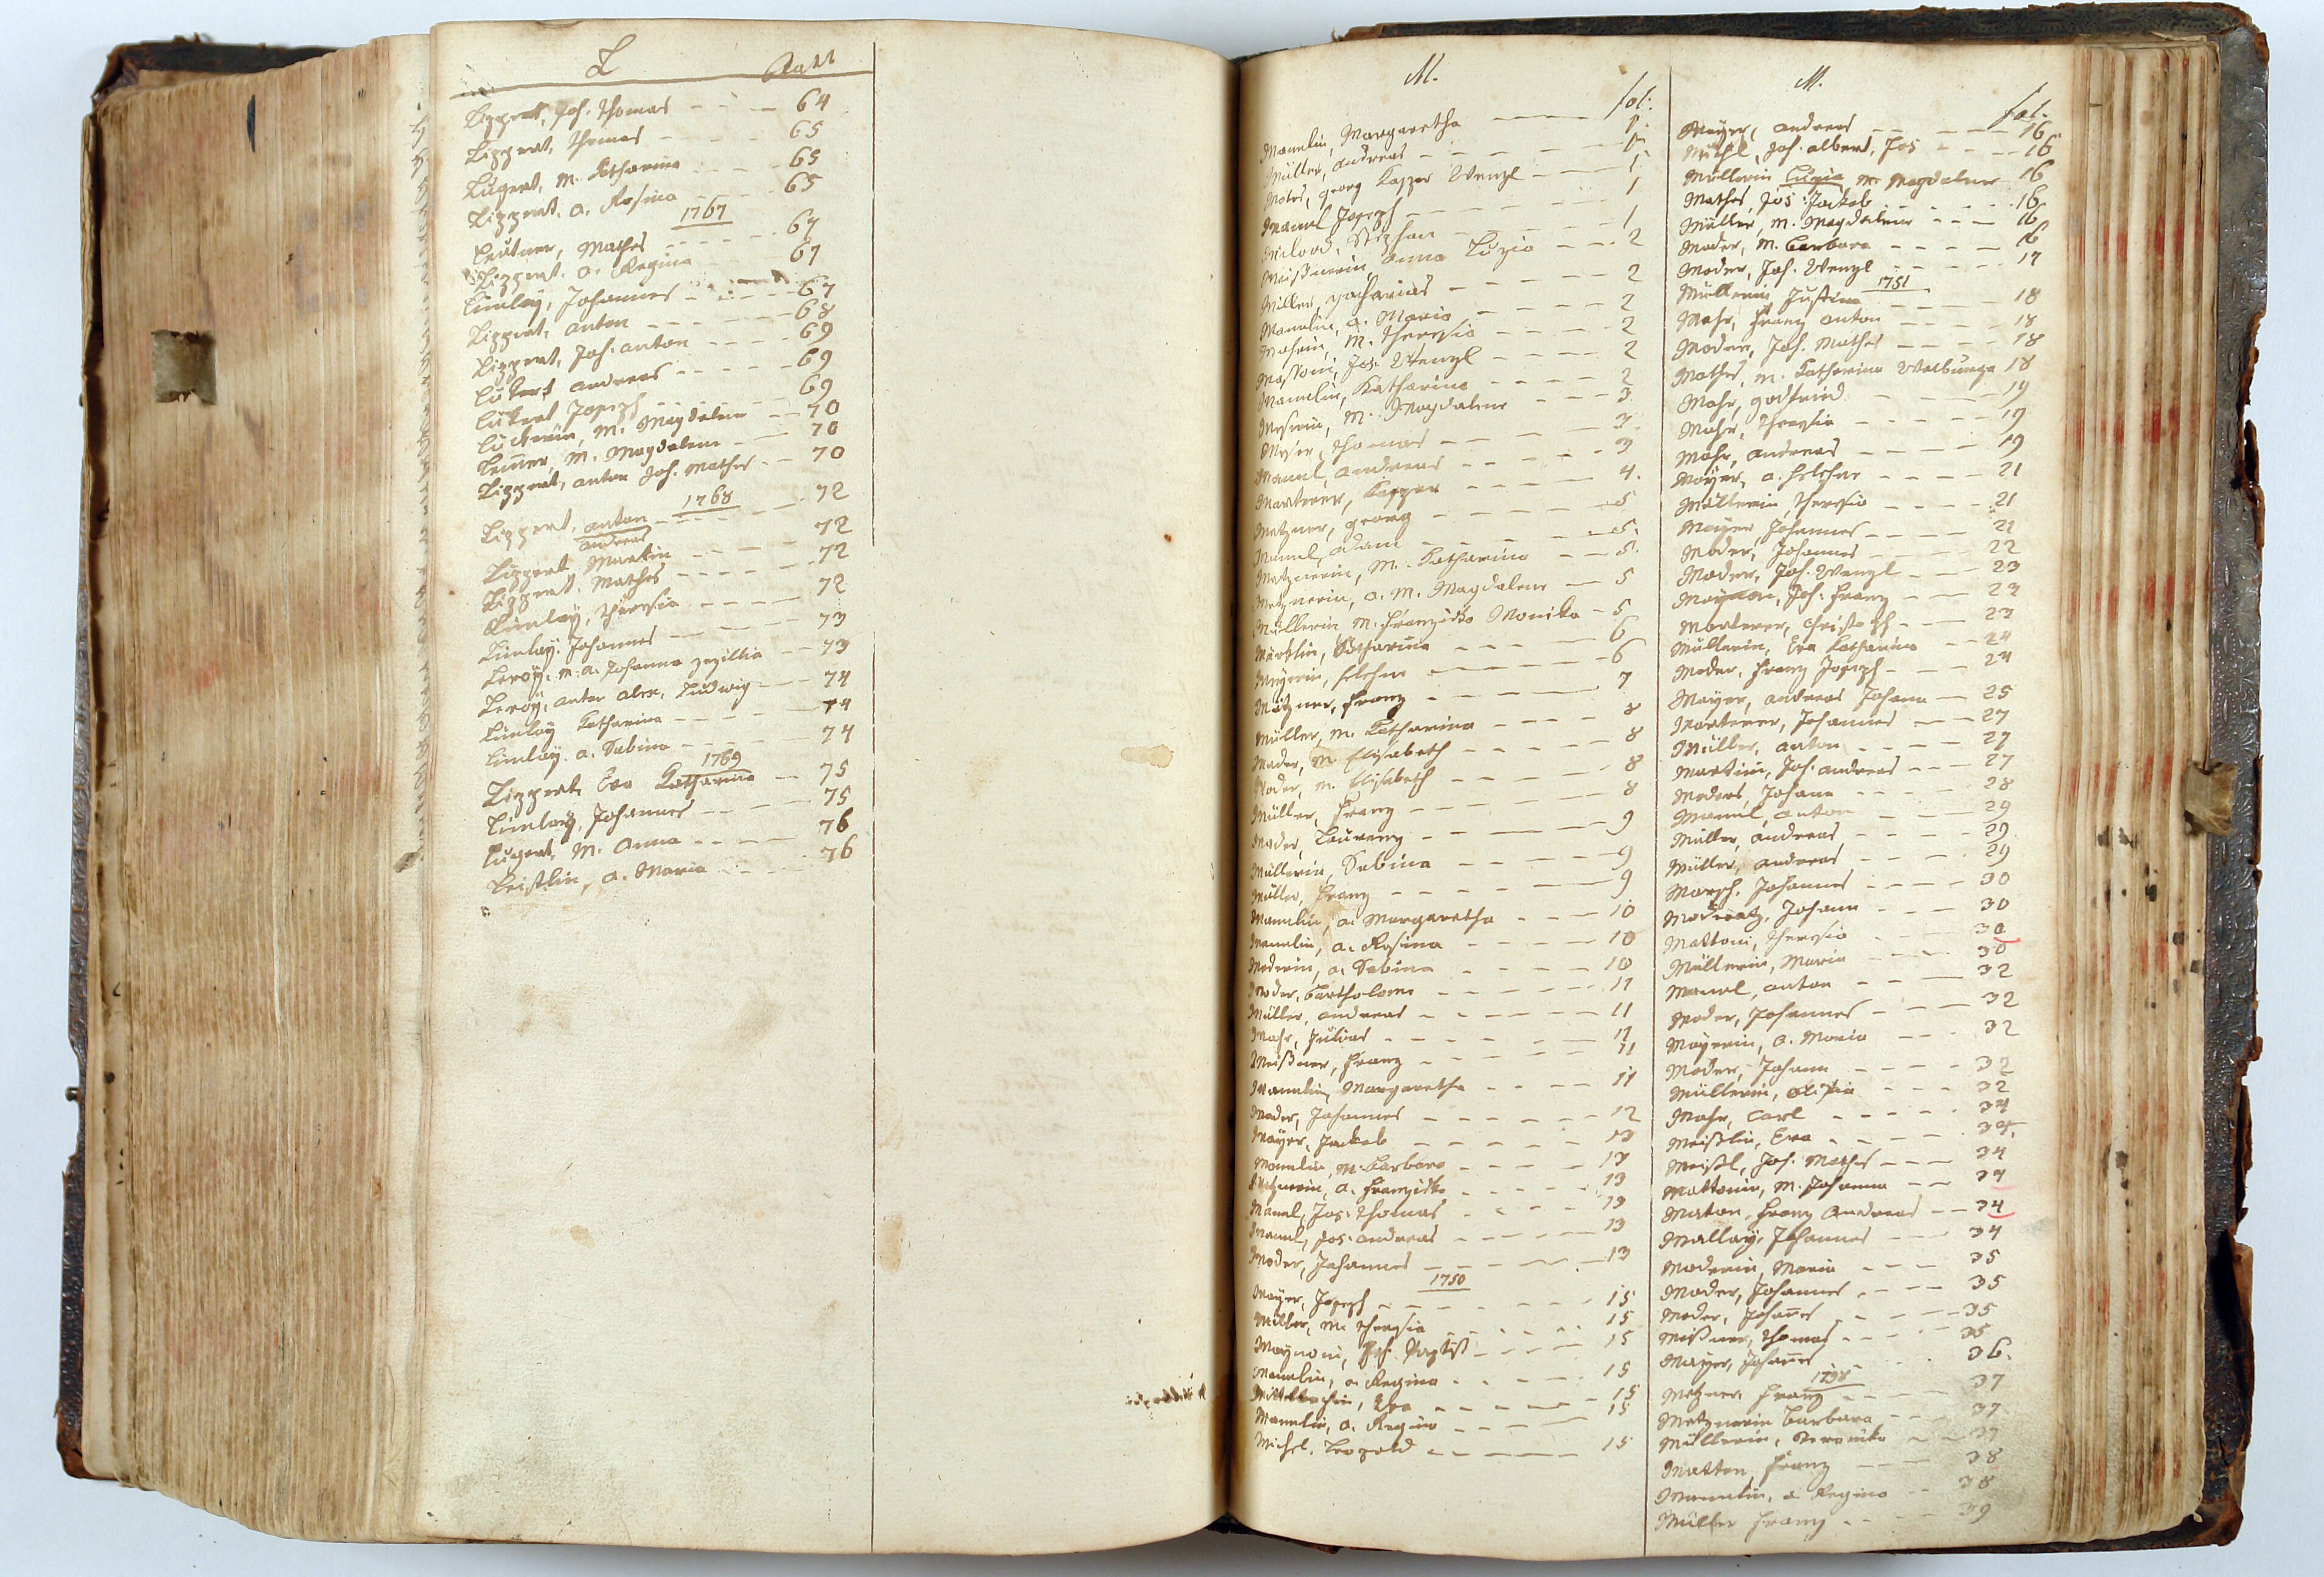 L
Lippert, Joh. Thomas - - - 64
Lippert, Thomas - - - 65
Lugert, M. Catharina - - - 65
Lippert. a. Rosina - - - 65
1767
Leütner, Mathes - - - 67
Lippert. a. Regina - - - 67
Limlay, Johannes - - - 67
Lippert, anton - - - 68
Lippert, Joh. anton - - - 69
andreas - - - 69
Joseph - - - 69
M. Magdalena - - 70
M. Magdalena - - 70
Lippert, anton Joh. Mathes - - 70
1768
Lippert, anton - - - 72
andreas
Lippert Martin - - - 72
Lippert. Mathes - - - 72
Limlay, Theresia - - - 72
Limlay. Johannes - - - 73
Leroÿ. m. a. Johanna - - 73
Leroÿ, anton alex. Ludwig - - 74
Limlay Catharina - - - 74
Limlay. a. Sabina - - - 74
1769
Lippert, Eva Catharina - - 75
Limlay, Johannes - - - 75
Lugert, M. Anna - - - 76
Leistlin, a. Maria - - - 76
M.
fol:
Mannlin, Margaretha - - - 1.
Müller, andreas - - - 1
georg Casper Wenzl - - 1
Mannl Joseph - - - 1
Stephan - - - 1
Meißnerin, Anna Luzia - - - 2
Miller, Zacharias - - - 2
Mannlin, a. Maria - - - 2
M. Theresia - - - 2
Mattoni, Jos. Wenzl - - - 2
Mannlin, Catharina - - - 2
M. Magdalena - - - 3
Thomas - - - 3.
Mannl, Andreas - - - 3
Marterer, Casper - - - 4.
Metzner, georg - - - 5
Mannl, Adam - - - 5.
Metznerin, M. Catharina - - 5.
Metznerin, a. M. Magdalena - - 5
Müllerin M. Franziska Monika - 5
Catharina - - - 6
Mayerin, Helena - - - 6
Metzner, Franz - - - 7
Müller, m. Catharina - - - 8
Mader, m Elisabeth - - - 8
Mader, m. Elisabeth - - - 8
Müller, Franz - - - 8
Mader, Laurenz - - - 9
Müllerin, Sabina - - - 9
Müller, Franz - - - 9
Mannlin, a. Margaretha - - - 10
Mannlin, a. Rosina - - - 10
Moderin, a. Sabina - - - 10
Moder, Bartholome - - - 11
Müller, andreas - - - 11
Mahr, Julius - - - 11
Meißner, Franz - - - 11
Mannlin, Margaretha - - - 11
Mader, Johannes - - - 12
Mayer, Jackob - - - 13
Mannlin, M. Barbara - - - 13
Metznerin, a. Franziska - - - 13
Mannl, Jos. Thomas - - - 13
Mannl, Jos. andreas - - - 13
Moder, Johannes - - - 13
1750
Mayer, Joseph - - - 15
Müller, M. Theresia - - - 15
Maynoni, Joh. Baptist - - - 15
Mannlin, a. Regina - - - 15
Eva - - - 15
Mannlin, a. Regina - - - 15
Michel, Leopold - - - 15
M.
fol.
Mayer, andreas - - - 16
Michl, Joh. albert, Jos - - - 16
Müllerin Luzia M. Magdalena 16
Mathes, Jos. Jackob - - - 16
Müller, M. Magdalena - - - 16
Moder, M. Barbara - - - 16
Moder, Joh. Wenzl - - - 17
1751
Müllerin Justina - - - 18
Mahr, Franz anton - - - 18
Moder, Joh. Mathes - - - 18
Mathes, M. Catharina Walburga 18
Mahr, godfried - - - 19
Mahr, Theresia - - - 19
Mahr, andreas - - - 19
Mayer, a. Helena - - - 21
Müllerin, Theresia - - - 21
Mayer, Johannes - - - 21
Moder, Johannes - - - 22
Moder, Joh. Wenzl - - - 23
Joh. Franz - - - 23
Marterer, Christoph - - - 23
Müllerin, Eva Catharina - - 24
Moder, Franz Joseph - - - 24
Mayer, andreas Johann - - 25
Marterer, Johannes - - - 27
Müller, anton - - - 27
Martin, Joh. andreas - - - 27
Moder, Johann - - - 28
Mannl, anton - - - 29
Müller, andreas - - - 29
Müller, andreas - - - 29
Johannes - - - 30
Johann - - - 30
Mattoni, Theresia - - - 30
Müllerin, Maria - - - 30
Mannl, anton - - - 32
Moder, Johannes - - - 32
Mayerin, a. Maria - - - 32
Moder, Johann - - - 32
Müllerin, - - - 32
Mahr, Carl - - - 34
Meißlin, Eva - - - 34.
Meißl, Joh. Mathes - - - 34
Mattonin, M. Johanna - - 34
Maton, Franz Andreas - - 34
Mallay, Johannes - - - 34
Moderin, Maria - - - 35
Moder, Johannes - - - 35
Moder, Johanes - - - 35
Meißner, Thomas - - - 35
Mayer, Johanes - - - 36.
Metzner Franz - - - 37
Metznerin Barbara - - - 37
Müllerin, Veronika - - - 37
Matton, Franz - - - 38
Mannlin, a. Regina - - 38
Müller Franz - - - 39